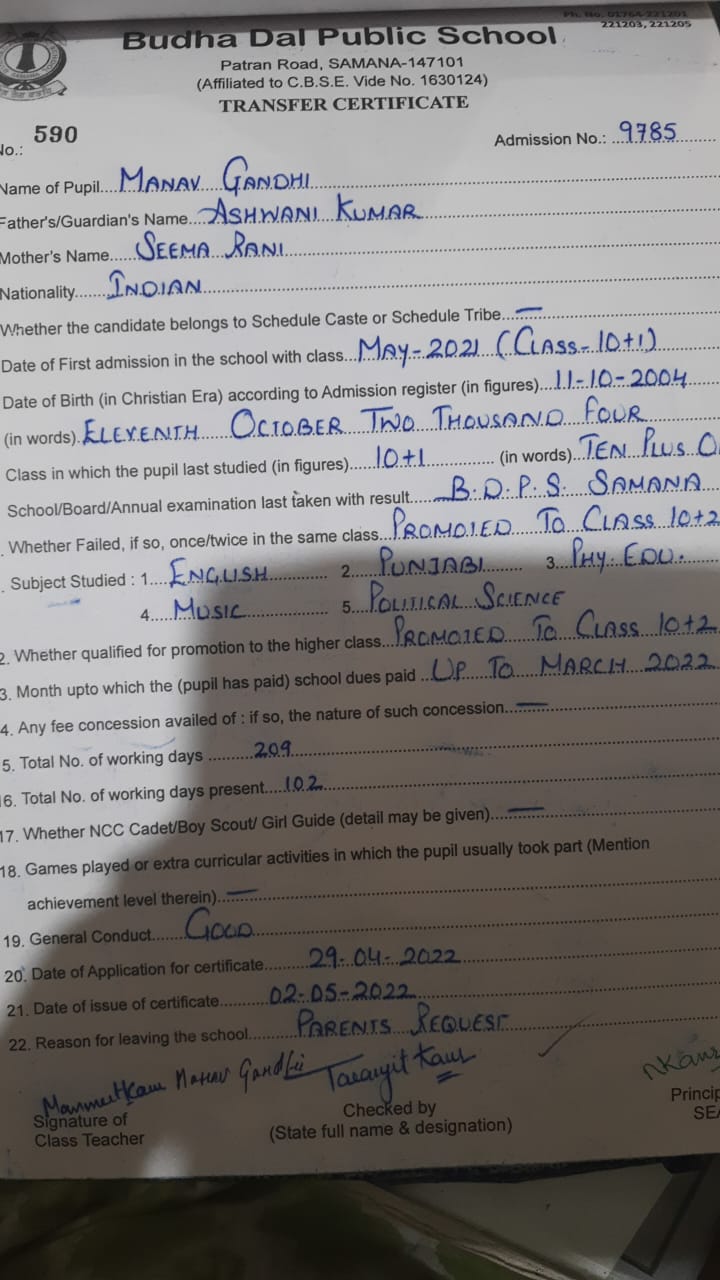 Ph. No. 01764-221201
221203, 221205
Budha Dal Public School
Patran Road, SAMANA-147101
(Affiliated to C.B.S.E. Vide No. 1630124)
TRANSFER CERTIFICATE
No.: 590 Admission No.: 9785
Name of Pupil MANAV GANDHI
Father's/Guardian's Name ASHWANI KUMAR
Mother's Name SEEMA RANI
Nationality INDIAN
Whether the candidate belongs to Schedule Caste or Schedule Tribe —
Date of First admission in the school with class MAY-2021 (CLASS-10+1)
Date of Birth (in Christian Era) according to Admission register (in figures) 11-10-2004
(in words) ELEVENTH OCTOBER TWO THOUSAND FOUR
Class in which the pupil last studied (in figures) 10+1 (in words) TEN PLUS O
School/Board/Annual examination last taken with result B.D.P.S. SAMANA
. Whether Failed, if so, once/twice in the same class PROMOTED TO CLASS 10+2
. Subject Studied : 1 ENGLISH 2 PUNJABI 3 PHY. EDU.
4 MUSIC 5 POLITICAL SCIENCE
2. Whether qualified for promotion to the higher class PROMOTED TO CLASS 10+2
3. Month upto which the (pupil has paid) school dues paid UP TO MARCH 2022
4. Any fee concession availed of : if so, the nature of such concession —
5. Total No. of working days 209
16. Total No. of working days present 102
17. Whether NCC Cadet/Boy Scout/ Girl Guide (detail may be given) —
18. Games played or extra curricular activities in which the pupil usually took part (Mention
achievement level therein) —
19. General Conduct GOOD
20. Date of Application for certificate 29-04-2022
21. Date of issue of certificate 02-05-2022
22. Reason for leaving the school PARENTS REQUEST
Manmeet Kaur Manav Gandhi Taranjit Kaur
Signature of
Class Teacher
Checked by
(State full name & designation)
Princip
SEA